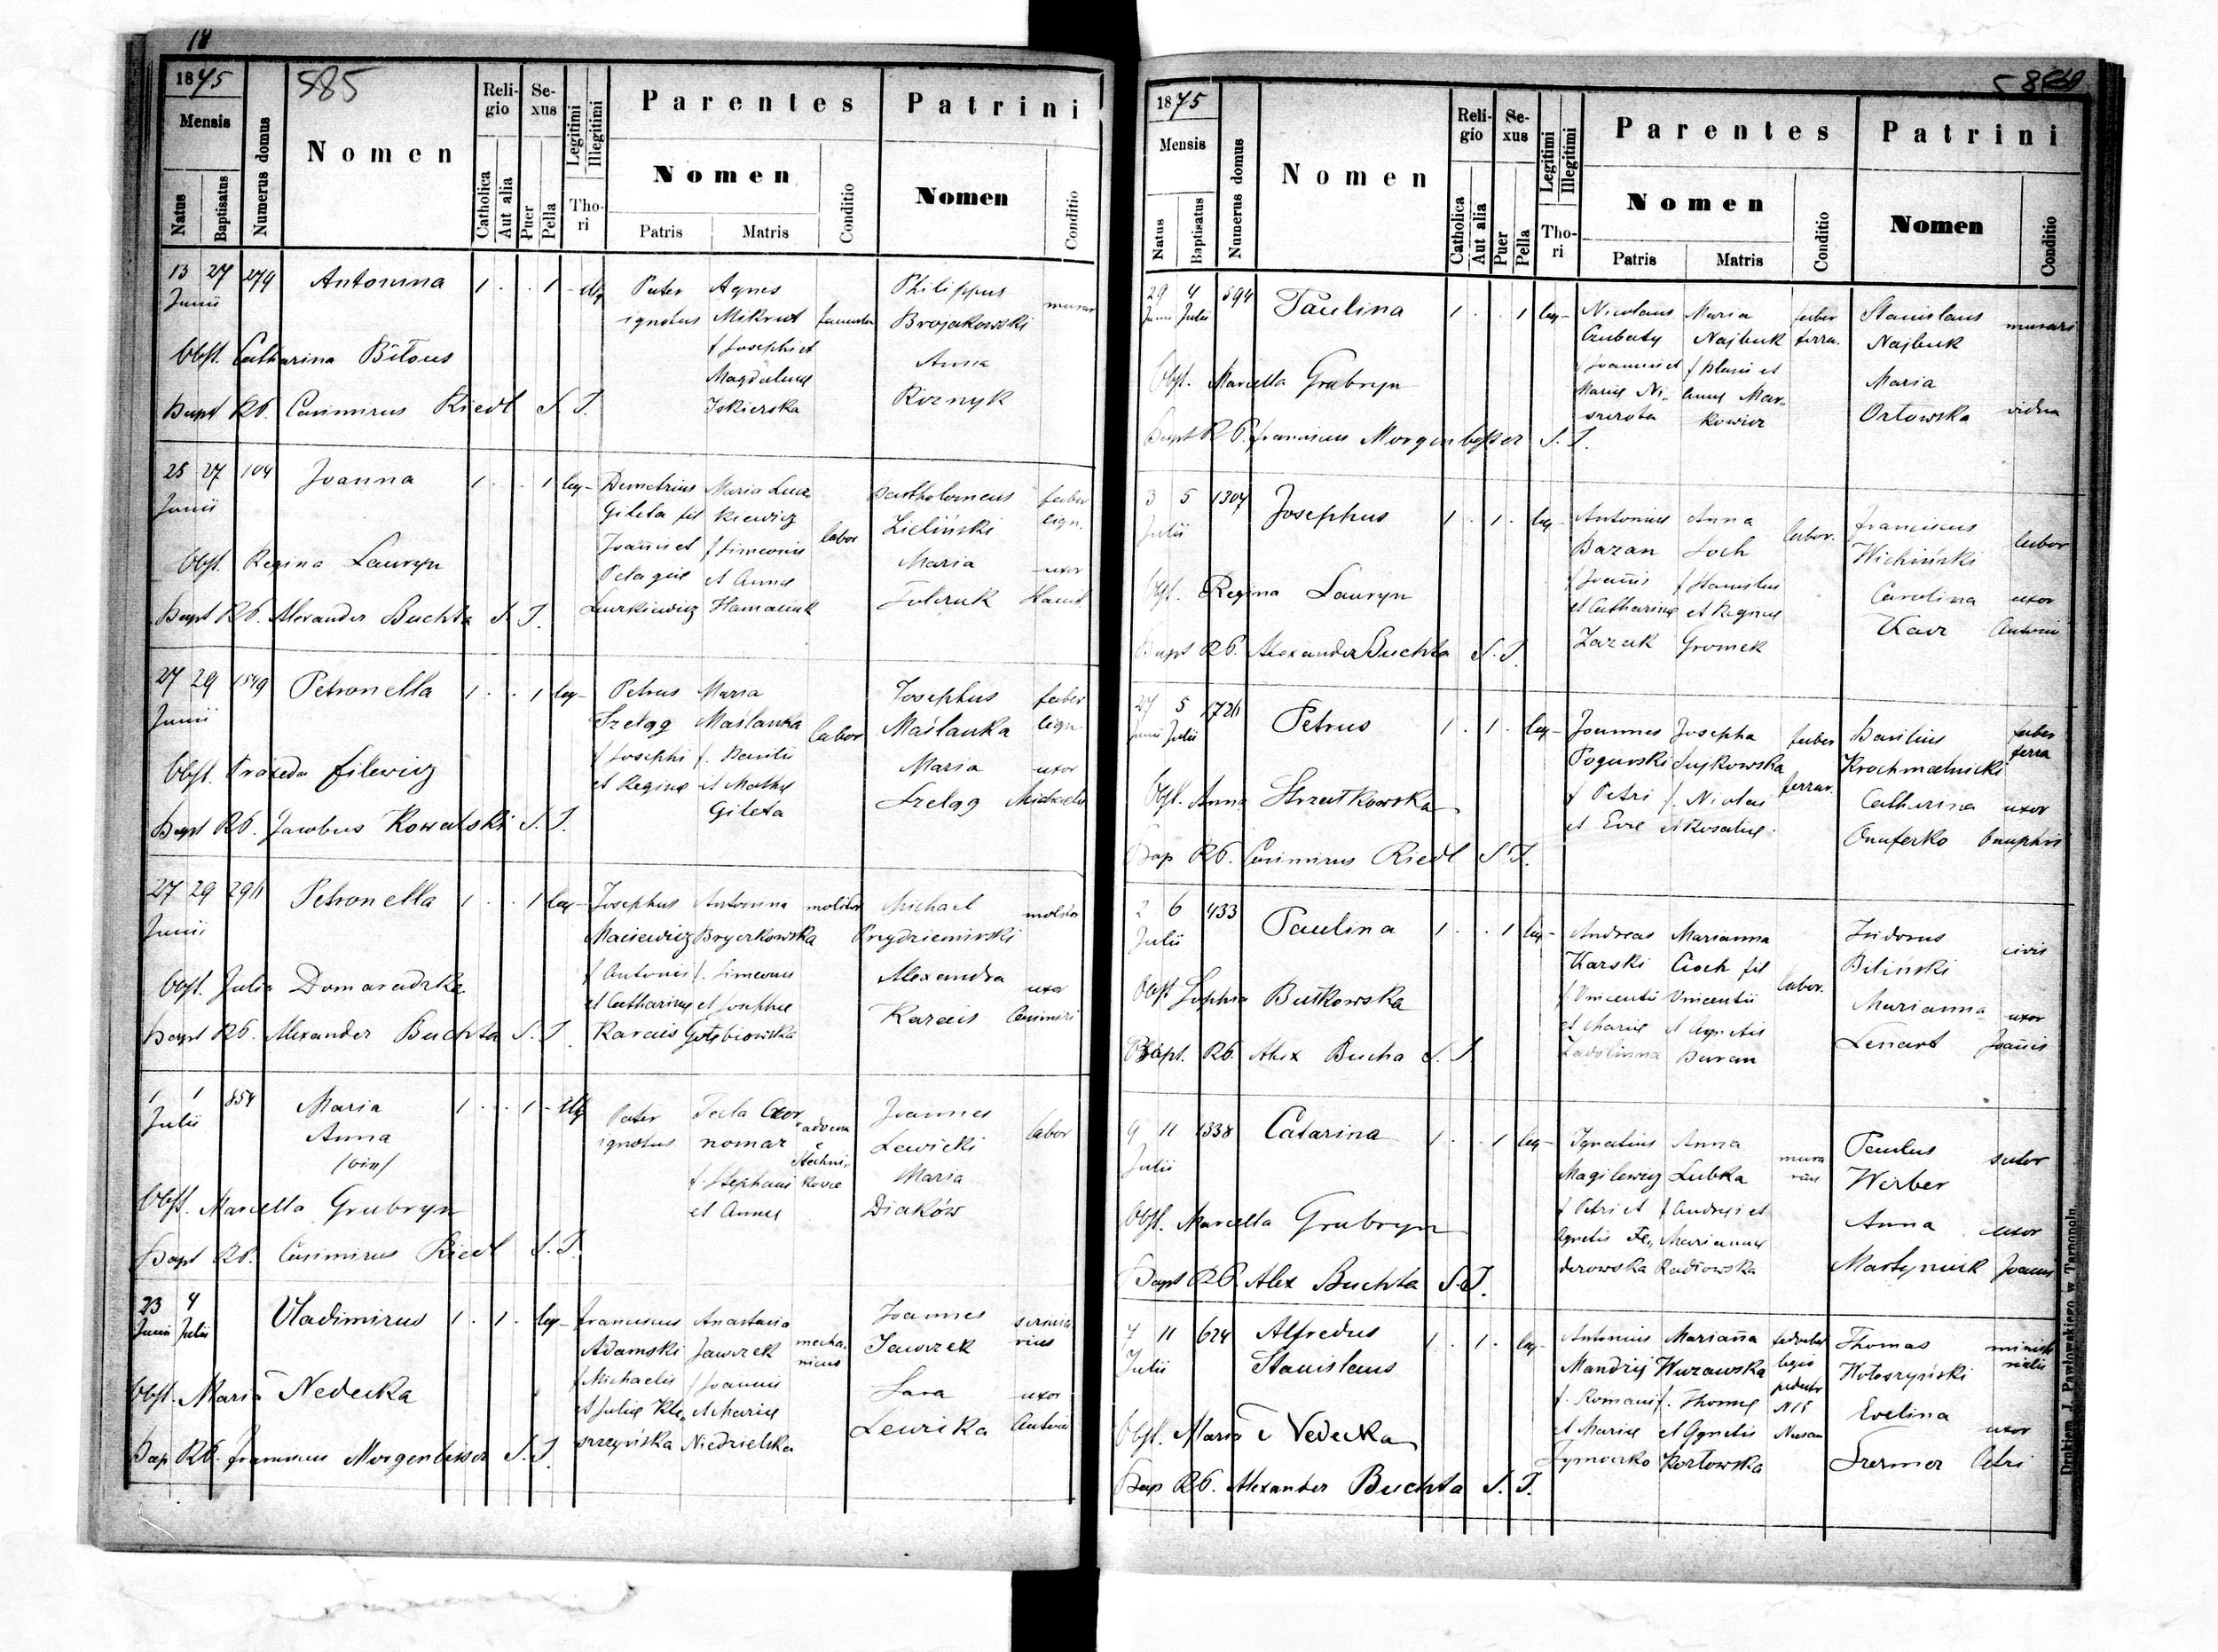 18
1875
585
Mensis
Natus
Baptisatus
Numerus domus
Nomen
Religio
Catholica
Aut alia
Sexus
Puer
Pella
Legitimi
Illegitimi
Thori
Parentes
Nomen
Patris
Matris
Conditio
Patrini
Nomen
Conditio
13 27 279 Antonina 1 . . 1 - illg Pater Agnes Philippus
Junii ignotus Mikrut famula Brojakowski murar
f Josephi et Anna
Obst. Catharina Biłous Magdalenae Roznyk
Bapt RP. Casimirus Riedl S. J. Iskierska
25 27 104 Joanna 1 . . 1 leg- Demetrius Maria Lucz Bartholomeus faber
Junii Gileta fil kiewicz Zieliński lign.
Joannis et f Simeonis labor Maria uxor
Obst. Regina Lauryn Pelagiae et Annae
Bapt RP. Alexander Buchta S. J. Lurkiewicz Hamaciuk
27 29 1549 Petronella 1 . . 1 leg- Petrus Maria Josephus faber
Junii Szeląg Maślanka labor Maślanka lign.
f Josephi f. Basilii Maria uxor
Obst. Praxeda Filewicz et Reginae et Mathae Szeląg Michaelis
Bapt RP. Jacobus Kowalski S. J. Gileta
27 29 296 Petronella 1 . . 1 leg- Josephus Antonina molitor Michael molitor
Junii Maciewicz Bryczkowska Przydziemirski
f Antonii f. Simeonis Alexandra uxor
Obst. Julia Domaradzka et Catharinae et Josephae Karais Casimiri
Bapt RP. Alexander Buchta S. J. Karais Gołębiowska
1 1 854 Maria 1 . . 1 - illg Pater Tecla Czor Joannes
Julii Anna ignotus nomaz advena Lewicki labor
/bin/ e
f. Stephani Maria
Obst. Marcella Grubryn et Annae Diaków
Bapt RP. Casimirus Riedl S. J.
23 4 Vladimirus 1 . 1 . leg- Franciscus Anastasia Joannes scrinia
Junii Julii Adamski Jawrzek mechanicus Jawrzek rius
f Michaelis f Joannis Sara uxor
Obst. Maria Nedecka et Juliae Kle et Mariae Lewicka Antonii
Bap RP. Franciscus Morgenbesser S. J. szczyńska Niedzielska
1875
Mensis
Natus
Baptisatus
Numerus domus
Nomen
Religio
Catholica
Aut alia
Sexus
Puer
Pella
Legitimi
Illegitimi
Thori
Parentes
Nomen
Patris
Matris
Conditio
Patrini
Nomen
Conditio
29 4 594 Paulina 1 . . 1 leg- Nicolaus Maria faber Stanislaus murari
Junii Julii Czubaty Najbuk ferra. Najbuk
Joannis et f Blasii et Maria
Obst. Marcella Grubryn Mariae Ni- Annae Mar- Orłowska vidua
szczota kowicz
Bapt RP. Franciscus Morgenbesser S. J.
3 5 1307 Josephus 1 . 1 . leg- Antonius Anna labor. Franciscus labor
Julii Baran Soch Wichiński
f Joannis f Stanislai Carolina uxor
Obst. Regina Lauryn et Catharinae et Reginae Kacz Antonii
Bapt RP. Alexander Buchta S. J. Zazuk Gromek
27 5 1726 Petrus 1 . 1 . leg- Joannes Josepha faber Basilius faber
Junii Julii Pogurski Sujkowska ferrar. Krochmalnicki ferra
f Petri f. Nicolai Catharina uxor
Obst. Anna Strzałkowska et Evae et Rosaliae Onuferko Onuphrii
Bap RP. Casimirus Riedl S J.
2 6 433 Paulina 1 . . 1 leg- Andreas Marianna Isidorus civis
Julii Karski Cioch fil labor. Biliński
f Vincentii Vincentii Marianna uxor
Obst Sophia Butkowska et Mariae et Agnetis Lenart Joannis
Bapt. RP. Alex Bucha S. J. Zadolinna Baran
9 11 1338 Catarina 1 . . 1 leg- Ignatius Anna murarius Paulus sutor
Julii Magilewicz Lubka Werber
f Petri et f Andreae et Anna uxor
Obst. Marcella Grubryn Agnetis Fe- Mariannae Martyniuk Joannis
Bapt RP. Alex Buchta S. J. derowska Radłowska
7 11 624 Alfredus 1 . 1 . leg- Antonius Marianna Thomas minist
Julii Stanislaus Mandzij Wurzawska Hołoszyński
f. Romani f. Thomae Evelina uxor
Obst. Maria Nedecka et Mariae et Agnetis Szermer Petri
Bap RP. Alexander Buchta S. J. Tymoczko Kozłowska
Drukiem J. Pawłowskiego w Tarnopolu